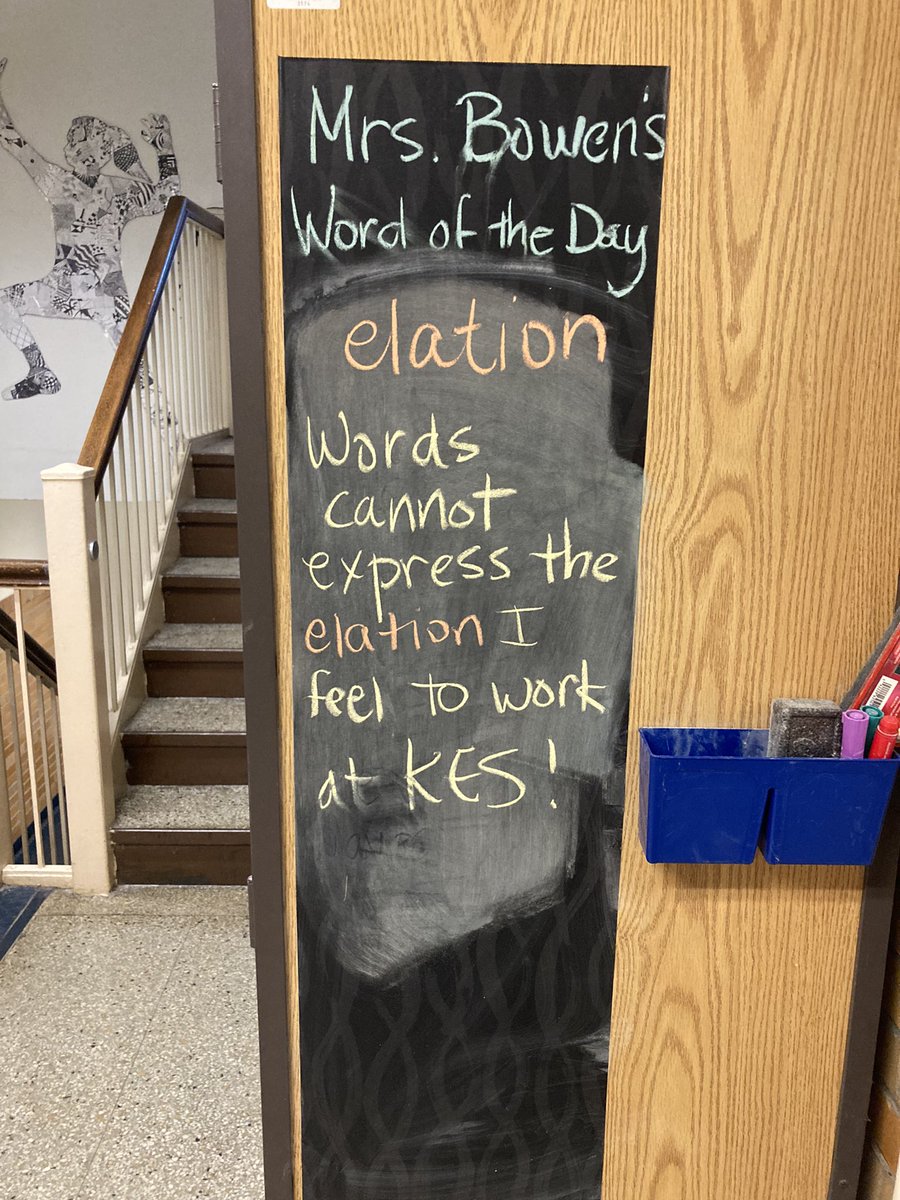 Mrs. Bowen's
Word of the Day
elation
Words
cannot
express the
elation I
feel to work
at KES!